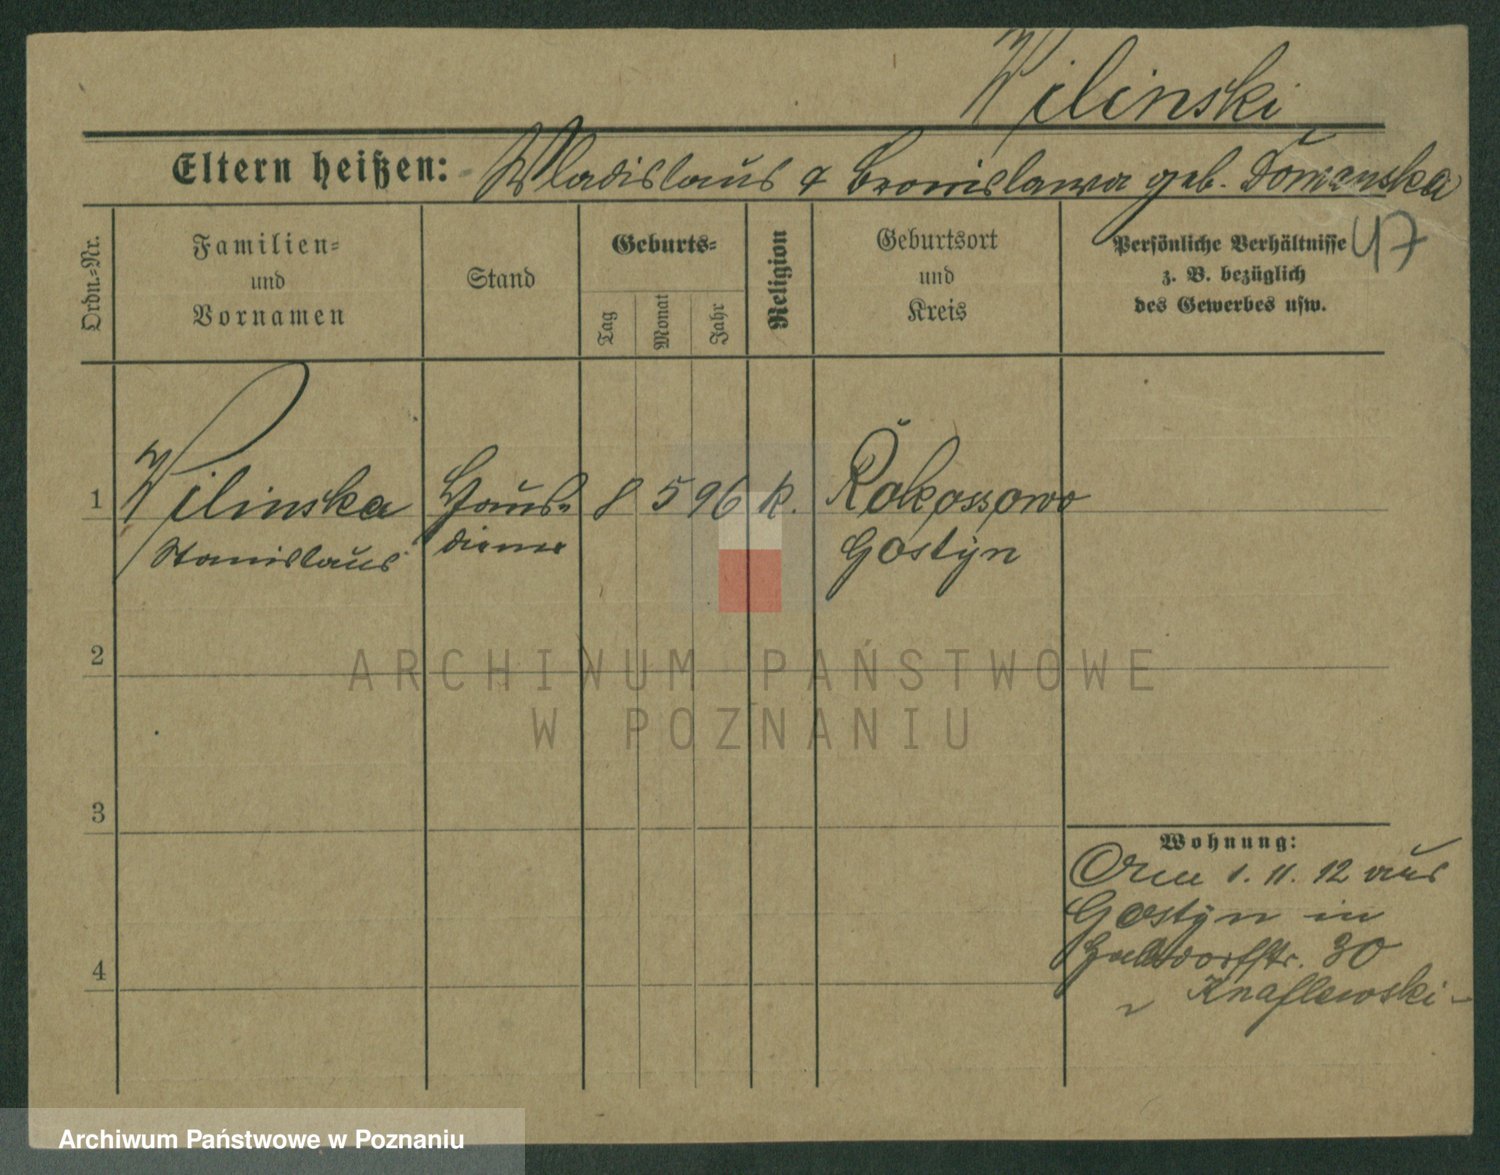 Wilinski
Eltern heißen: Wladislaus & Bronislawa geb. Domanska
47
Ordn.-Nr.
Familien-
und
Vornamen
Stand
Geburts-
Tag
Monat
Jahr
Religion
Geburtsort
und
Kreis
Persönliche Verhältnisse
z. B. bezüglich
des Gewerbes usw.
1 Wilinska Haus- 8 5 96 k. Rokossowo
Stanislaus diener Gostyn
2
ARCHIWUM PAŃSTWOWE
W POZNANIU
3
Wohnung:
Am 1. 11. 12 aus
Gostyn in
30
4
Knaflewski -
Archiwum Państwowe w Poznaniu